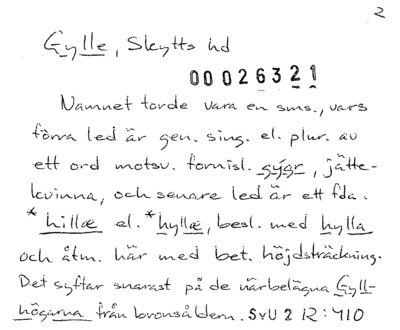 2
Gylle, Skytts hd
00026321
Namnet torde vara en sms., vars
förra led är gen. sing. el. plur. av
ett ord motsv. fornisl. gýgr, jätte-
kvinna, och senare led är ett fda.
*hillæ el. *hyllæ, besl. med hylla
och åtm. här med bet. höjdsträckning.
Det syftar snarast på de närbelägna Gyll-
högarna från bronsåldern. SvU 2 12:410